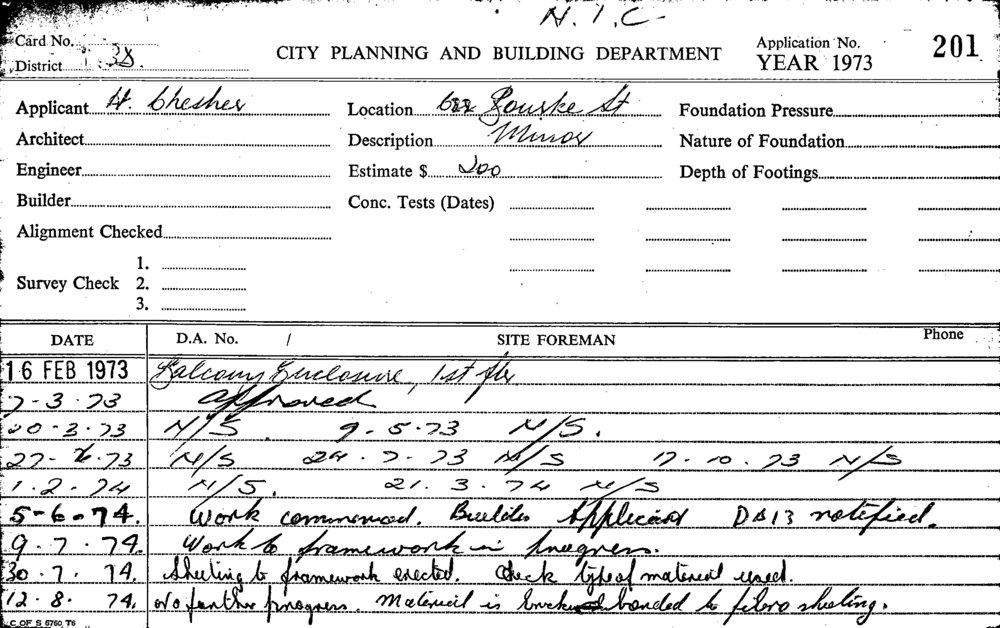 N.I.C.
Card No.
District 38.
CITY PLANNING AND BUILDING DEPARTMENT
Application No.
YEAR 1973
201
Applicant H. Chesher Location 622 Bourke St Foundation Pressure
Architect Description Minor Nature of Foundation
Engineer Estimate $ 200 Depth of Footings
Builder Conc. Tests (Dates)
Alignment Checked
1.
Survey Check 2.
3.
DATE D.A. No. / SITE FOREMAN Phone
16 FEB 1973 Balcony Enclosure, 1st flr
7-3.73 approved
20-3.73 N/S. 9-5.73 N/S.
27-6.73 N/S 24-7-73 N/S 17-10.73 N/S
1.2.74 N/S. 21.3.74 N/S
5-6.74. Work commenced. Builder Applicant DB13 notified.
9.7.74. Work to framework in progress.
30.7.74. Sheeting to framework erected. Check type of material used.
12.8.74. No further progress. Material is bonded to fibro sheeting.
C OF S 5760, T6